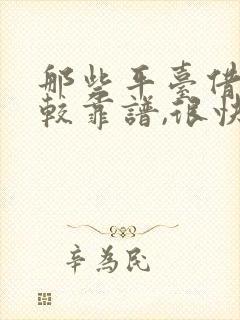 那些平臺借
較靠譜,很快
辛為民